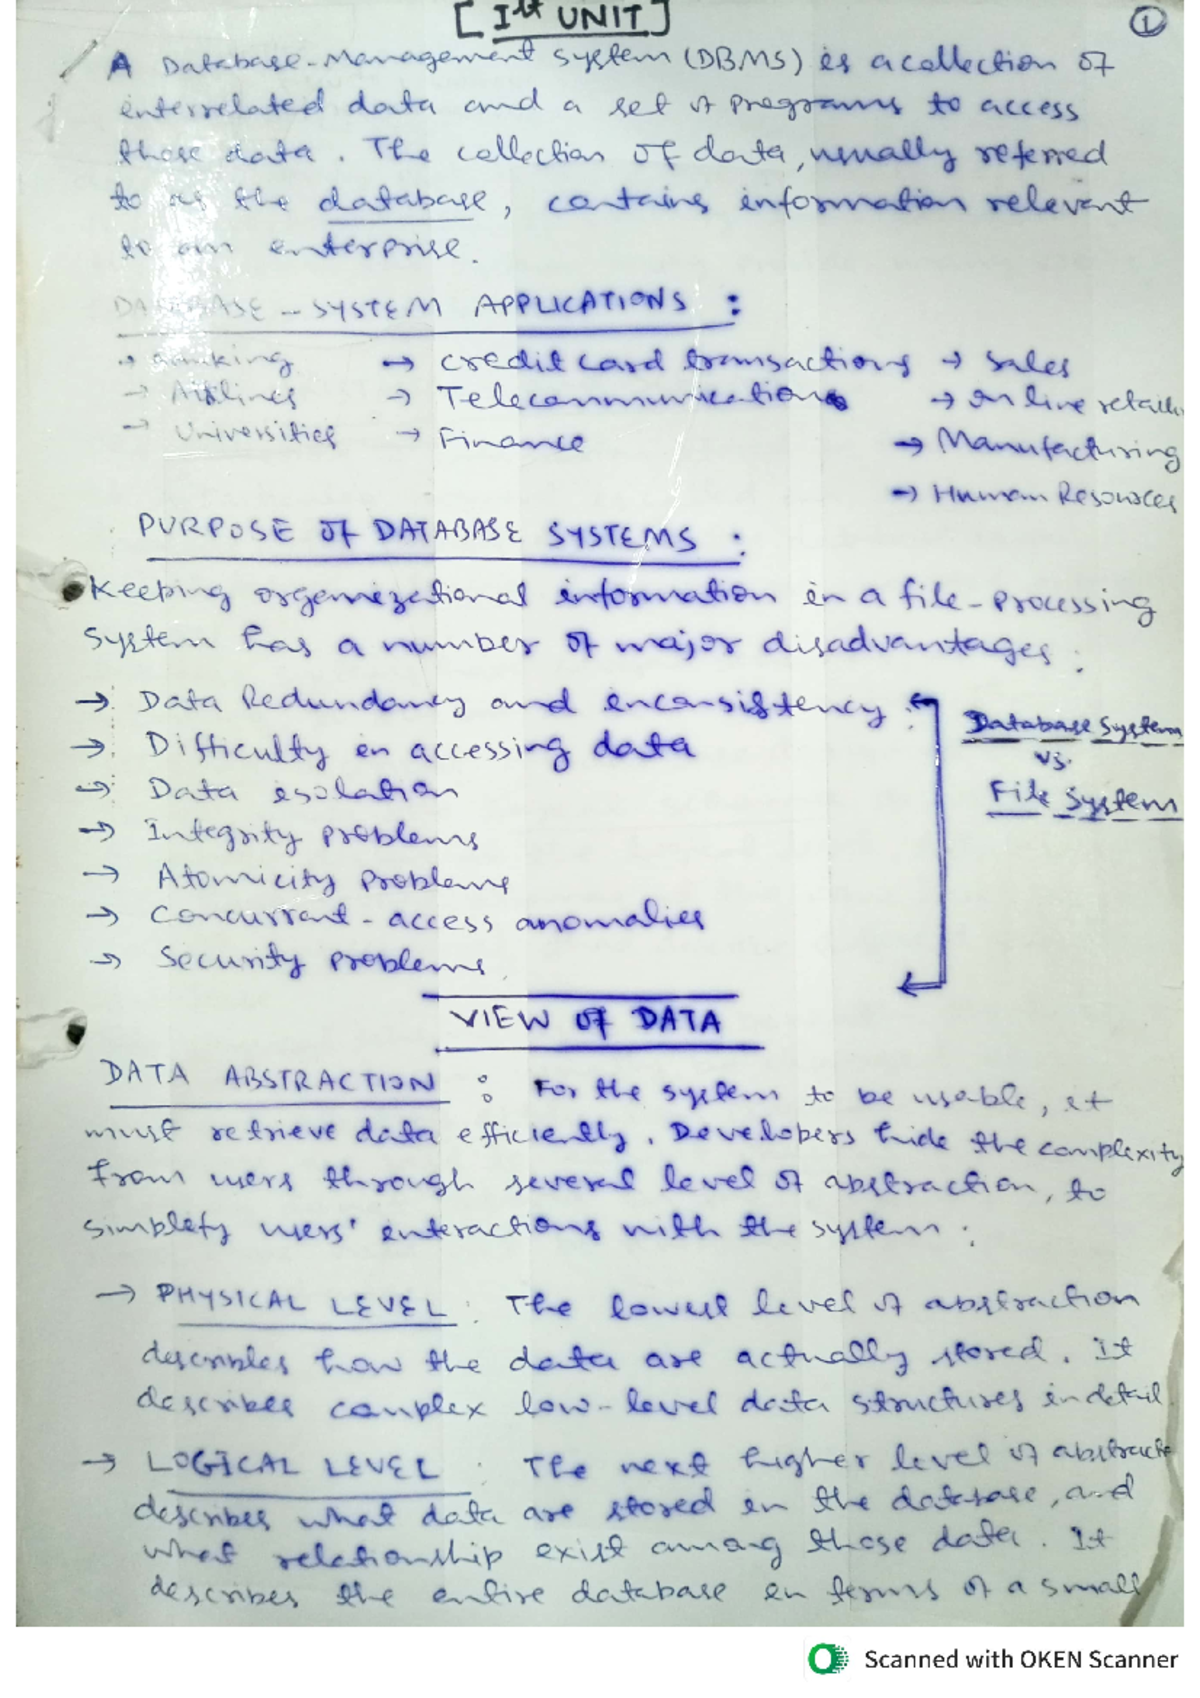 [Ist UNIT]
1
A Database-Management System (DBMS) is a collection of
interrelated data and a set of programs to access
those data. The collection of data, usually referred
to as the database, contains information relevant
to an enterprise.
DATABASE-SYSTEM APPLICATIONS :
→ Banking → Credit card transactions → Sales
→ Airlines → Telecommunications → Online retaile
→ Universities → Finance → Manufacturing
→ Human Resources
PURPOSE OF DATABASE SYSTEMS :
Keeping organizational information in a file-processing
System has a number of major disadvantages :
→ Data Redundancy and inconsistency
→ Difficulty in accessing data
→ Data isolation
→ Integrity problems
→ Atomicity problems
→ Concurrant-access anomalies
→ Security problems
Database System
vs.
File System
VIEW OF DATA
DATA ABSTRACTION : For the system to be usable, it
must retrieve data efficiently. Developers hide the complexity
from users through several level of abstraction, to
simplefy users' interactions with the system :
→ PHYSICAL LEVEL : The lowest level of abstraction
describes how the data are actually stored. It
describes complex low-level data structures in detail
→ LOGICAL LEVEL : The next higher level of abstracti
describes what data are stored in the database, and
what relationship exist among those data. It
describes the entire database in terms of a small
Scanned with OKEN Scanner